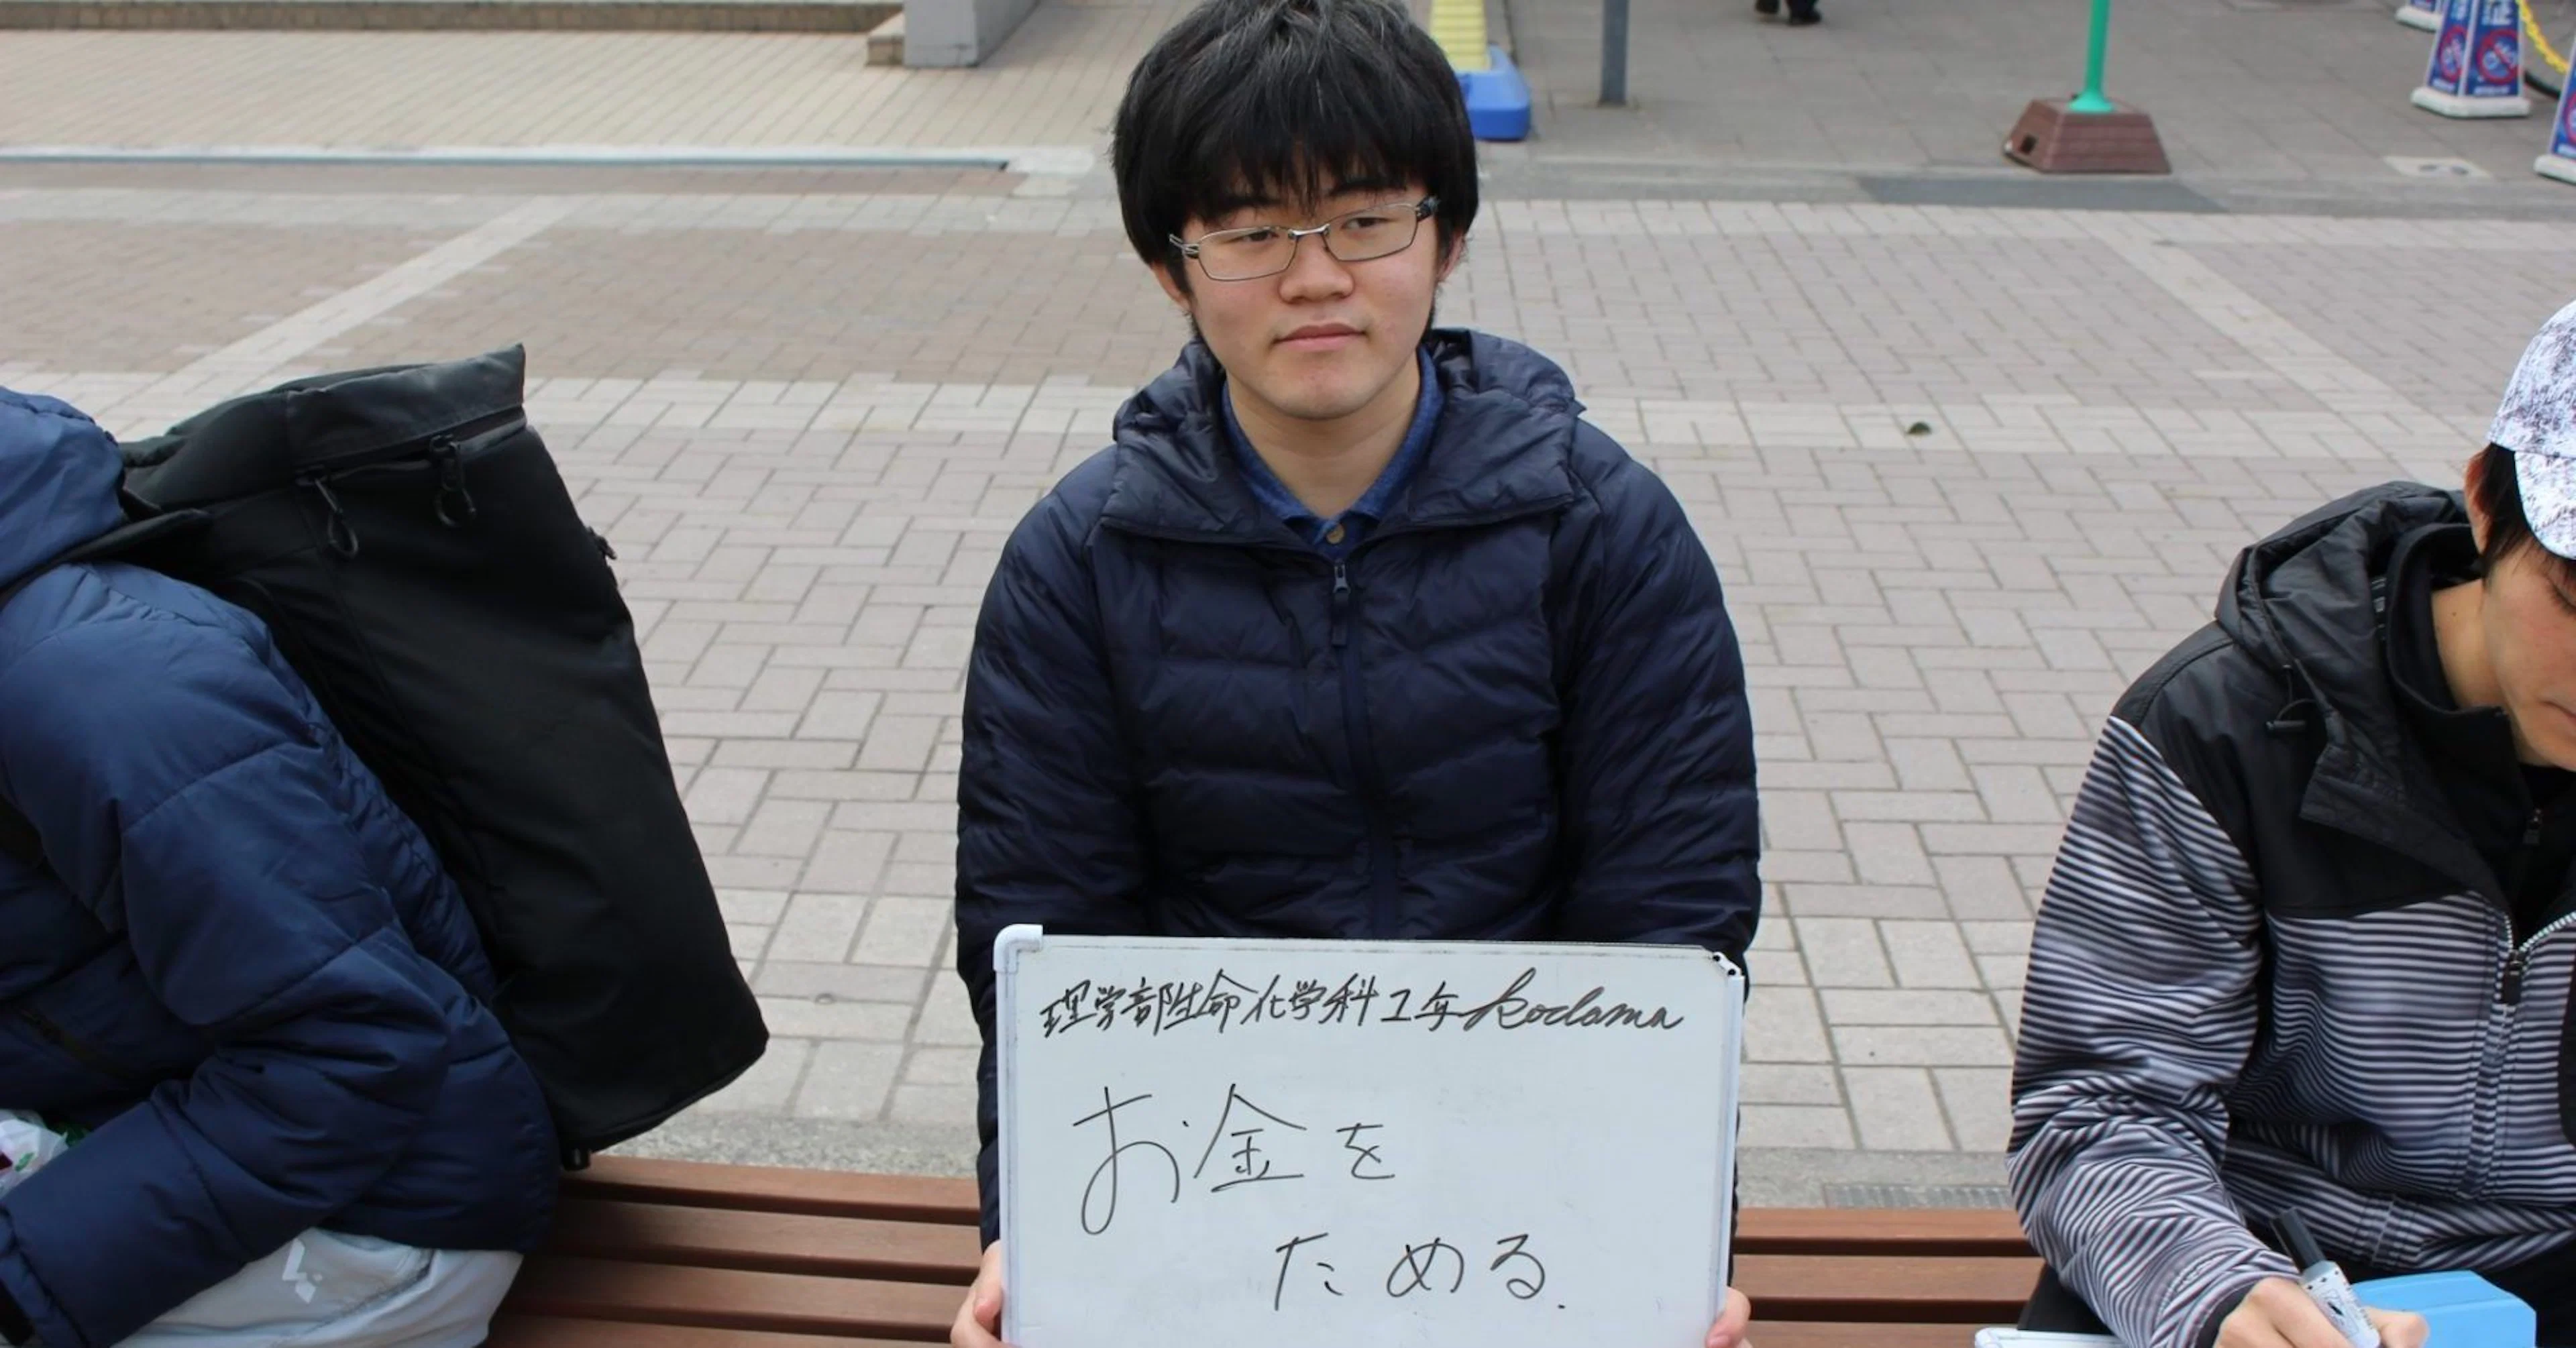 理学部生命化学科1年 Kodama
お金を
ためる.